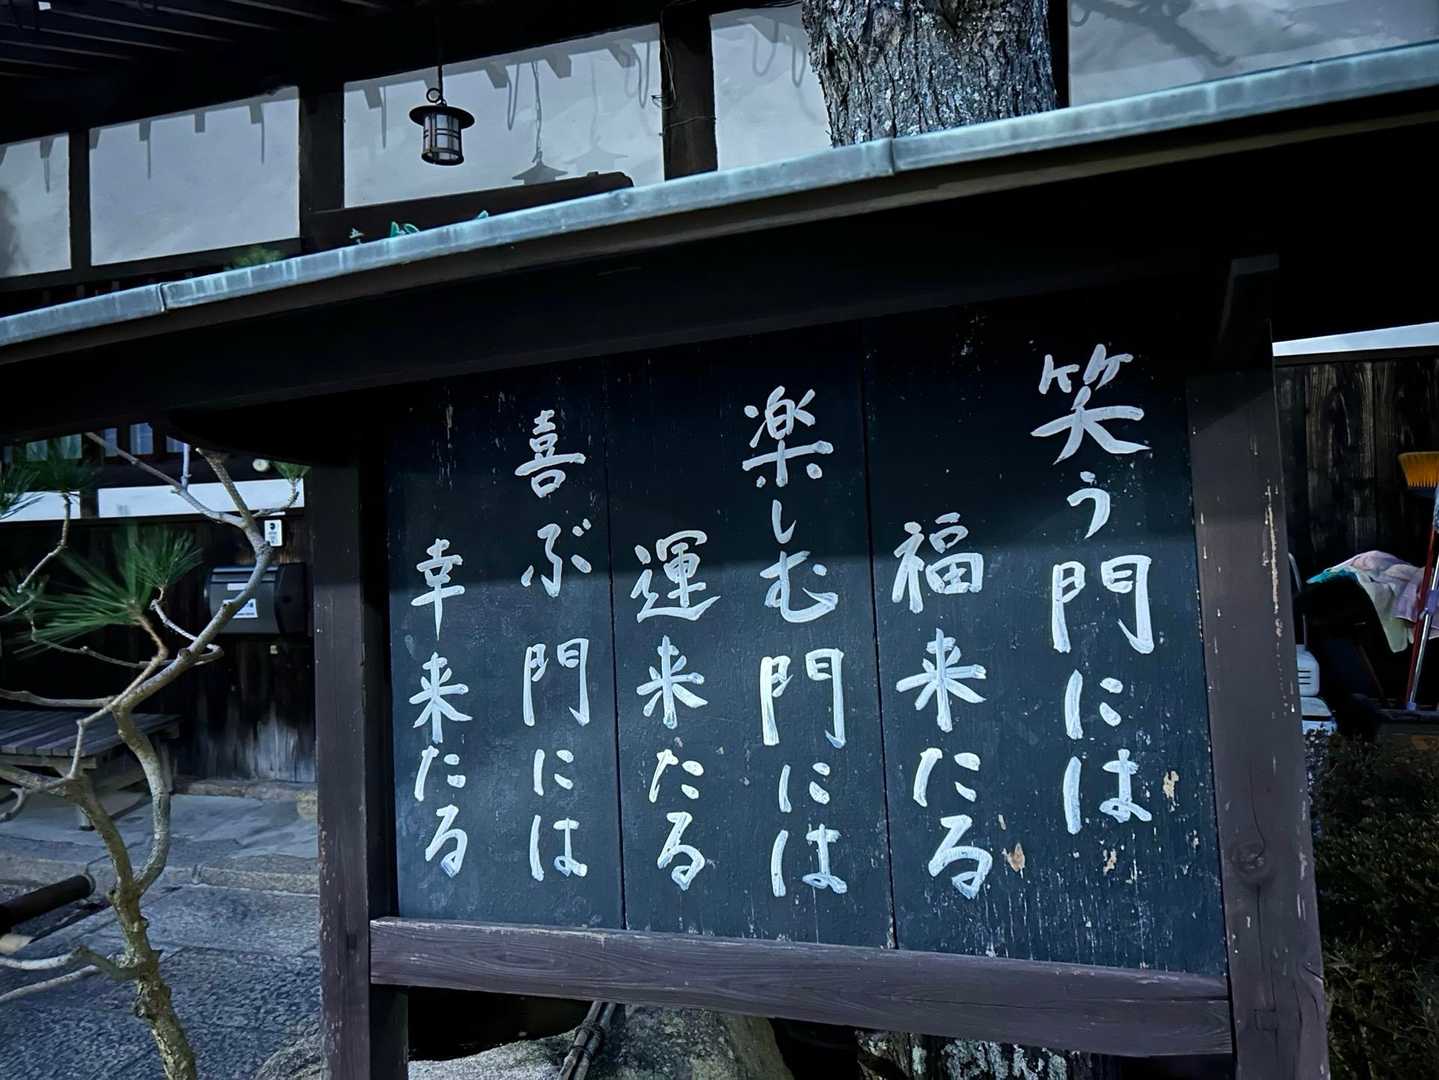 笑う門には
福来たる
楽しむ門には
運来たる
喜ぶ門には
幸来たる